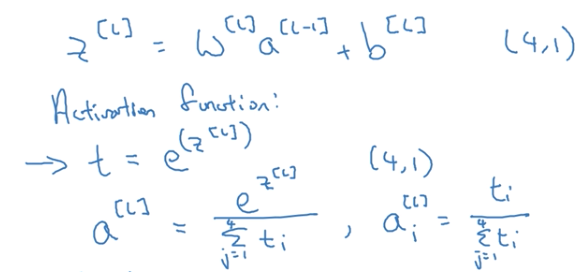 z^[L] = W^[L] a^[L-1] + b^[L] (4,1)
Activation function:
→ t = e^(z^[L]) (4,1)
a^[L] = e^z^[L] / ∑_{j=1}^4 t_i , a_i^[L] = t_i / ∑_{j=1}^4 t_i